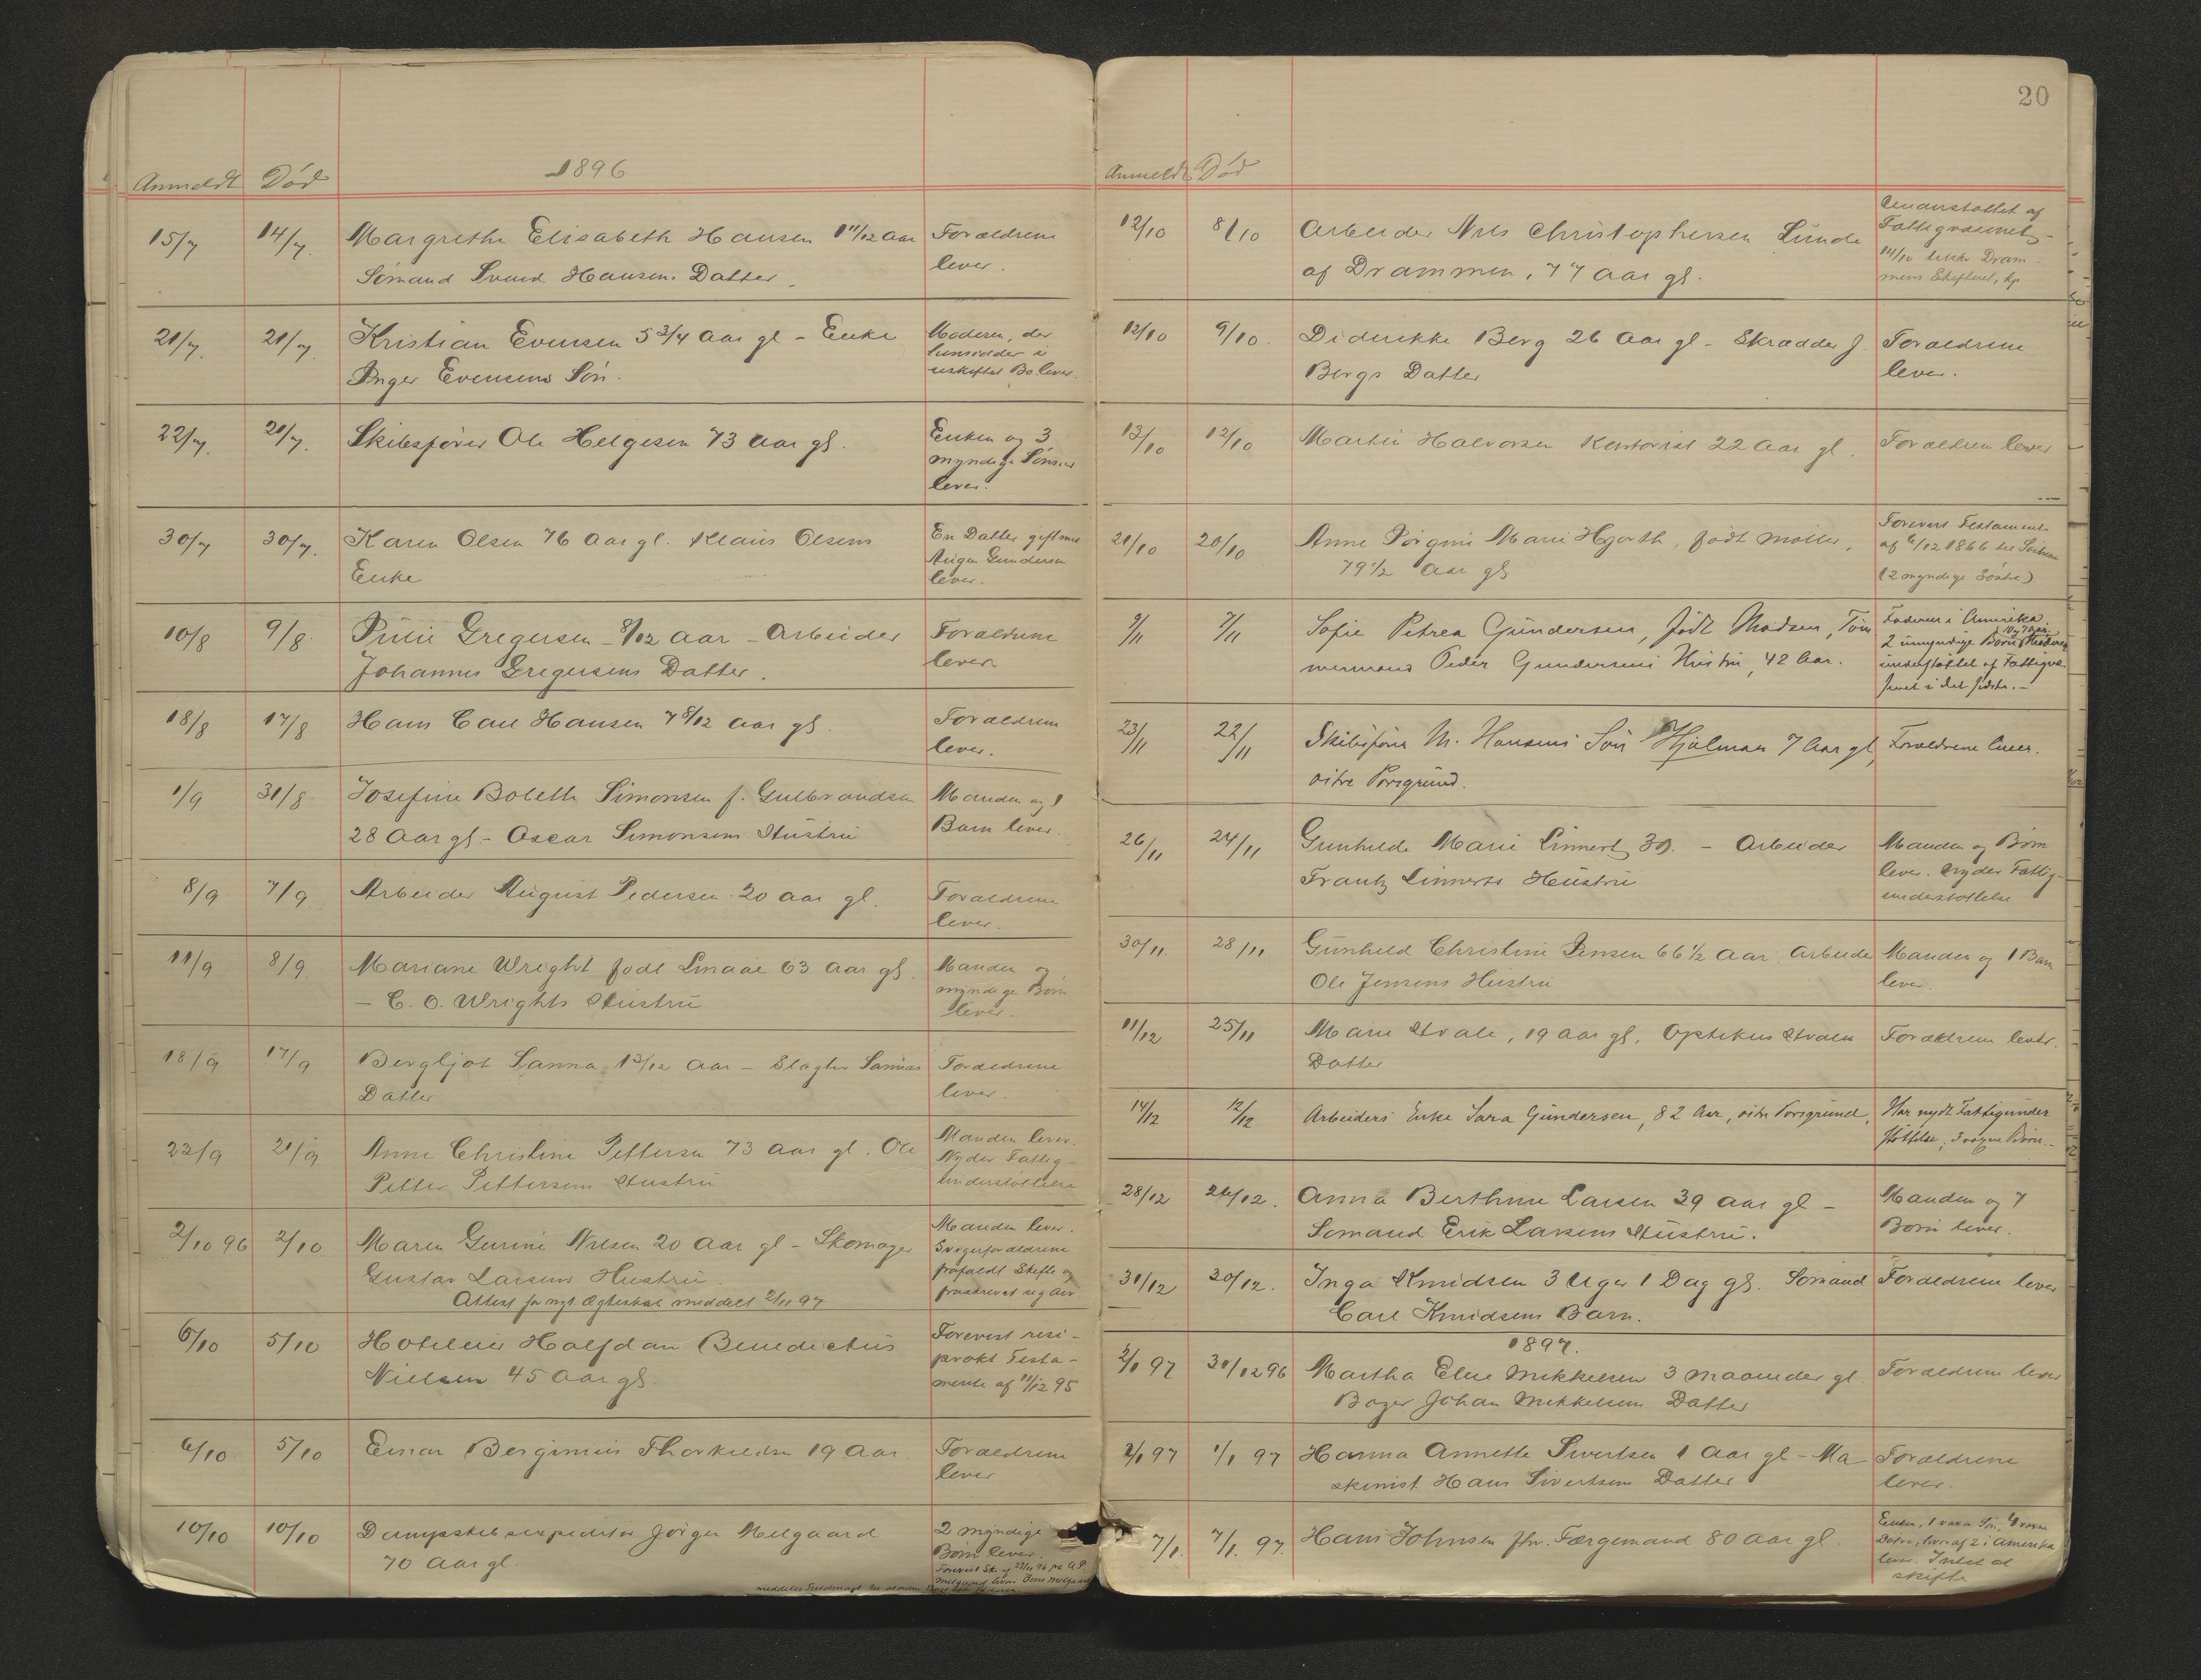 1896
Anmeldt Død
15/7 14/7 Margrethe Elisabeth Hansen 1 11/12 aar Forældrene
Sømand Svend Hansens Datter. lever.
21/7. 21/7. Kristian Evensen 5 3/4 aar gl - Enke Moderen, der
Inger Evensens Søn. sidder i
uskiftet Bo lever.
22/7. 21/7. Skibsfører Ole Helgesen 73 aar gl. Enken og 3
myndige Sønner
lever.
30/7 30/7. Karen Olsen 76 aar gl. Klaus Olsens En Datter gift med
Enke Gundersen
lever.
10/8 9/8. Julie Gregersen - 8/12 aar - Arbeider Forældrene
Johannes Gregersens Datter. lever
18/8 17/8 Hans Carl Hansen 7 8/12 aar gl. Forældrene
lever.
1/9 31/8 Josefine Bolette Simonsen f. Gulbrandsen Manden og 1
28 aar gl - Oscar Simonsens Hustru Barn lever.
8/9 7/9 Arbeider August Pedersen 20 aar gl. Forældrene
lever.
11/9 8/9 Mariane Wright født Linaae 63 aar gl. Manden og
- C. O. Wrights Hustru myndige Børn
lever.
18/9 17/9 Bergljot Sanna 1 3/12 aar - Slagter Sannas Forældrene
Datter lever.
23/9 21/9 Anne Christine Pettersen 73 aar gl. Ole Manden lever.
Petter Pettersens Hustru Nyder Fattig-
understøttelse
2/10 96 2/10 Maren Gurine Nilsen 20 aar gl - Skomager Manden lever.
Gustav Larsens Hustru. Svigerforældrene
frafaldt Skifte og
Attest for nyt Ægteskab meddelt 2/11 97 fraskrevet sig Arv
6/10 5/10 Hoteleier Halfdan Benedictus Forevist resi-
Nielsen 45 aar gl. prokt Testa-
mente af 11/12 95
6/10 5/10 Einar Thorkildsen 19 Aar Forældrene
lever
10/10 10/10 Dampskibsexpeditør Jørgen Melgaard 2 myndige
70 aar gl. Børn lever.
20
Anmeldt Død
12/10 8/10 Arbeider Nils Christophersen Lunde Understøttet af
af Drammen, 77 aar gl. Fattigvæsenet -
14/10 Dram-
mens Skifteret,
12/10 9/10. Diderikke Berg 26 aar gl - Skrædder J. Forældrene
Bergs Datter lever.
13/10 12/10 Martin Halvorsen Kontorist 22 aar gl. Forældrene lever
21/10 20/10 Anne Marie Hjorth, født Møller, Forevist Testamente
79 1/2 aar gl af 6/12 1866
(2 myndige )
9/11 7/11 Sofie Petrea Gundersen, født Madsen, Tøm Faderen i Amerika.
mermand Peder Gundersens Hustru, 42 Aar. 2 umyndige Børn
understøttet af Fattigvæ-
senet i det sidste. -
23/11 22/11 Skibsfører M. Hansens Søn Hjalmar 7 Aar gl, Forældrene lever.
østre Porsgrund.
26/11 24/11 Gunhilde Marie Linnert 39. - Arbeider Manden og Børn
Frantz Linnerts Hustru lever. Nyder Fattig-
understøttelse
30/11. 28/11 Gunhild Christine Jensen 66 1/2 aar Arbeider Manden og 1 Barn
Ole Jensens Hustru lever.
11/12 25/11 Marie Hvale, 19 aar gl. Optikus Hvales Forældrene lever.
Datter
14/12 12/12 Arbeiders Enke Sara Gundersen, 82 Aar, østre Porsgrund, Har nydt Fattigunder
støttelse, 3 voxne Børn. -
28/12 26/12. Anna Berthine Larsen 39 aar gl - Manden og 7
Sømand Erik Larsens Hustru. Børn lever.
31/12 30/12. Inga Knudsen 3 Uger 1 Dag gl. Sømand Forældrene lever
Carl Knudsens Barn.
1897.
2/1 97 31/12 96 Martha Elise Mikkelsen 3 maaneder gl. Forældrene lever
Bager Johan Mikkelsens Datter
2/1 97 1/1 97 Hanna Annette Sivertsen 1 Aar gl - Ma Forældrene
skinist Hans Sivertsens Datter lever.
7/1. 7/1. 97. Hans Johnsen fhv. Færgemand 80 aar gl. Enken, 1 voxen Søn, 4 voxne
Døtre, hvoraf 2 i Amerika
lever. Intet at
skifte